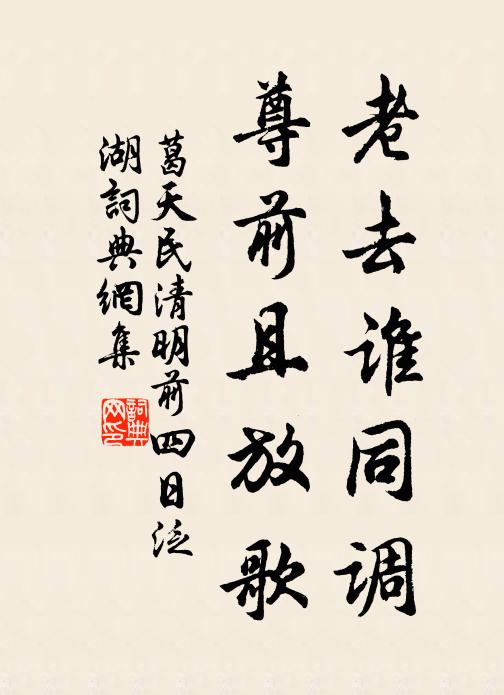 老去谁同调
尊前且放歌
葛天民清明前四日泛
湖詞典網集
詞典
网印